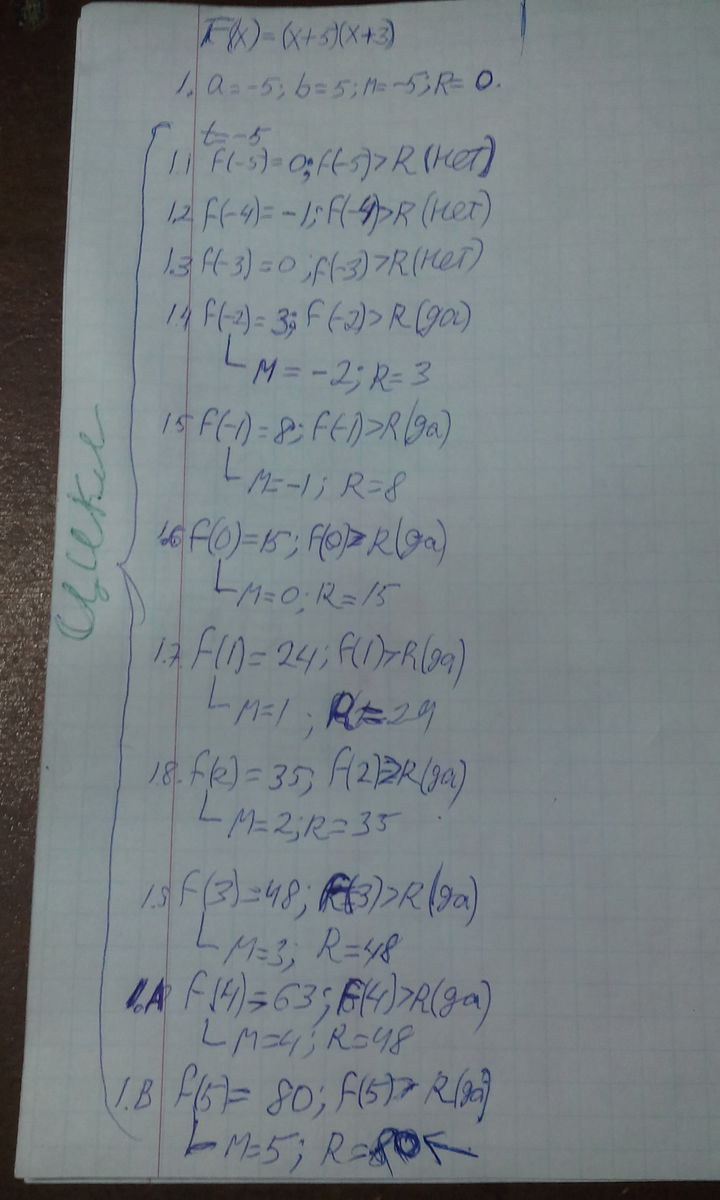 F(x)=(x+5)(x+3)
1. a=-5; b=5; M=-5; R=0.
t=-5
1.1 f(-5)=0; f(-5)>R(нет)
1.2 f(-4)=-1; f(-4)>R(нет)
1.3 f(-3)=0; f(-3)>R(нет)
1.4 f(-2)=3; f(-2)>R(да)
M=-2; R=3
1.5 f(-1)=8; f(-1)>R(да)
M=-1; R=8
1.6 f(0)=15; f(0)>R(да)
M=0; R=15
1.7 f(1)=24; f(1)>R(да)
M=1; R=24
1.8. f(2)=35; f(2)>R(да)
M=2; R=35
1.9 f(3)=48; F(3)>R(да)
M=3; R=48
1.A f(4)=63; F(4)>R(да)
M=4; R=48
1.B f(5)=80; f(5)>R(да)
M=5; R=80